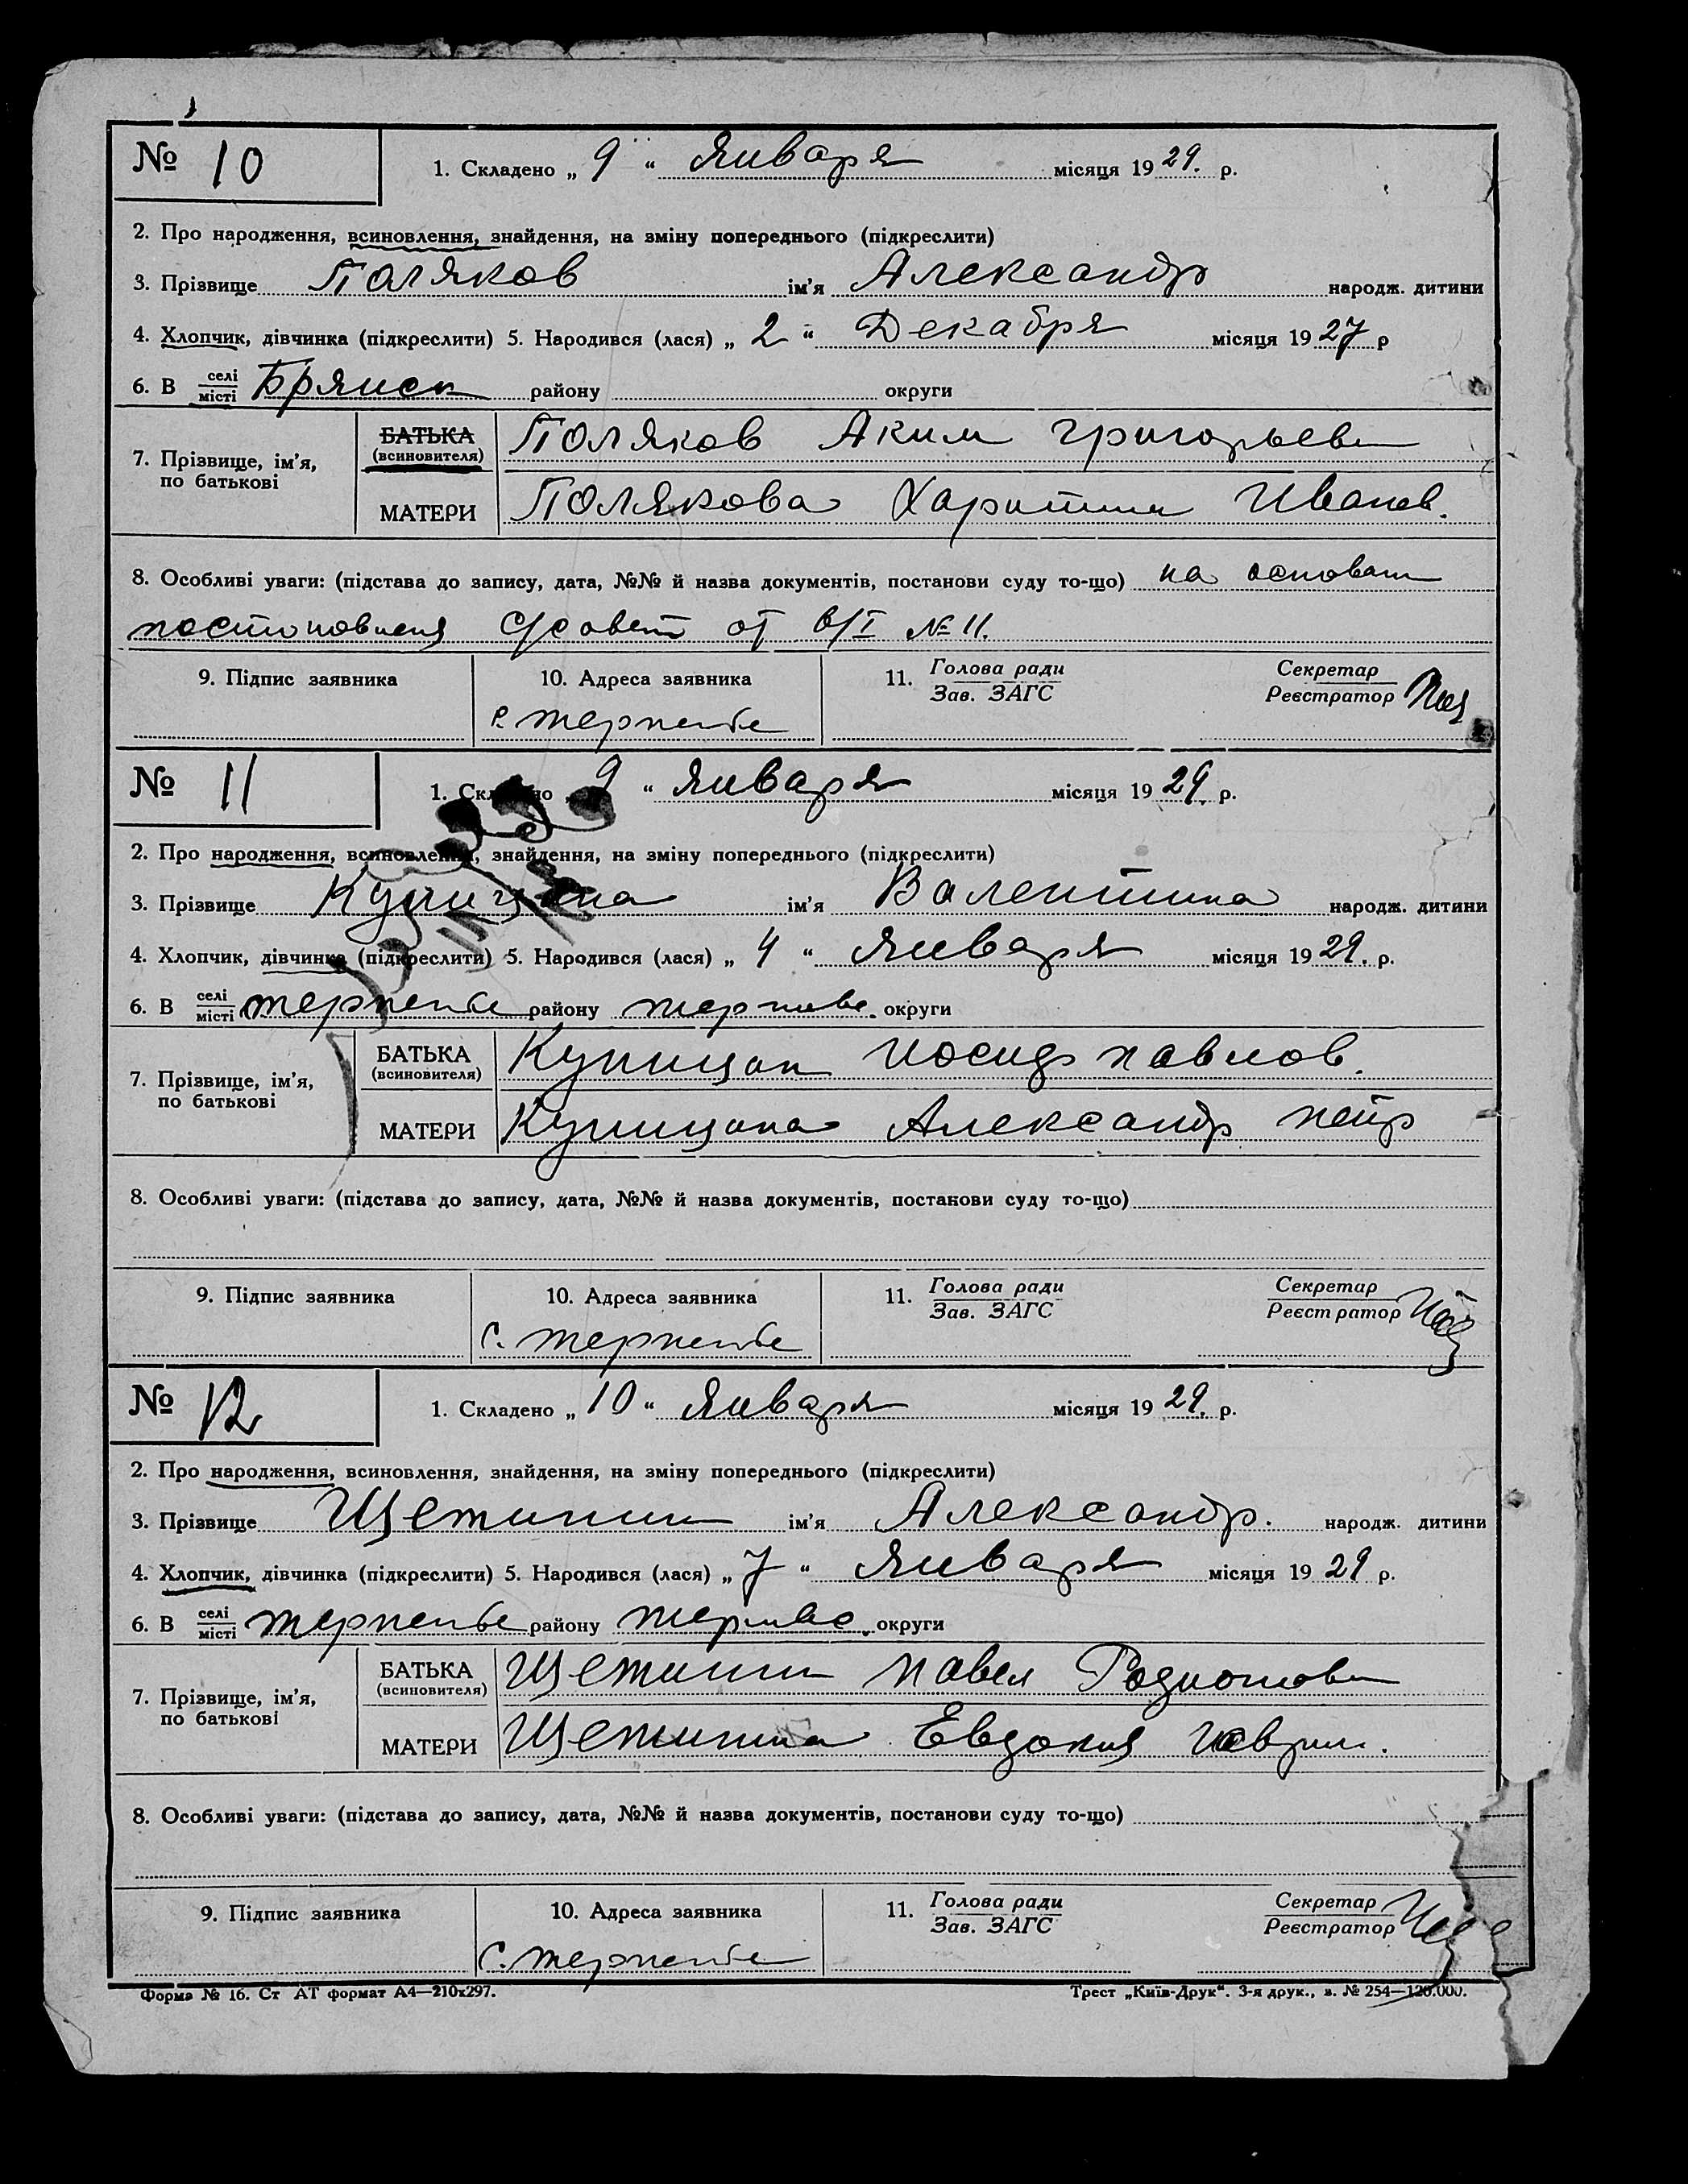 № 10 1. Складено „ 9 “ Января місяця 1929. р.
2. Про народження, всиновлення, знайдення, на зміну попереднього (підкреслити)
3. Прізвище Поляков ім’я Александр народж. дитини
4. Хлопчик, дівчинка (підкреслити) 5. Народився (лася) „ 2 “ Декабря місяця 1927 р
6. В селі місті Брянск району округи
7. Прізвище, ім’я, по батькові
БАТЬКА (всиновителя) Поляков Аким Григорьев
МАТЕРИ Полякова Харитина Иванов.
8. Особливі уваги: (підстава до запису, дата, №№ й назва документів, постанови суду то-що) на основан
постоновления С/совет от 8/I № 11.
9. Підпис заявника 10. Адреса заявника 11. Голова ради Зав. ЗАГС Секретар Реєстратор
с. терпенье
№ 11 1. Складено „ 9 “ Января місяця 1929. р.
2. Про народження, всиновлення, знайдення, на зміну попереднього (підкреслити)
3. Прізвище ім’я Валентина народж. дитини
4. Хлопчик, дівчинка (підкреслити) 5. Народився (лася) „ 4 “ Января місяця 1929. р.
6. В селі місті терпенье району округи
7. Прізвище, ім’я, по батькові
БАТЬКА (всиновителя) Купицан Иосиф павлов.
МАТЕРИ Купицана Александр петр
8. Особливі уваги: (підстава до запису, дата, №№ й назва документів, постанови суду то-що)
9. Підпис заявника 10. Адреса заявника 11. Голова ради Зав. ЗАГС Секретар Реєстратор
с. терпенье
№ 12 1. Складено „ 10 “ Января місяця 1929. р.
2. Про народження, всиновлення, знайдення, на зміну попереднього (підкреслити)
3. Прізвище Щетинин ім’я Александр. народж. дитини
4. Хлопчик, дівчинка (підкреслити) 5. Народився (лася) „ 7 “ Января місяця 1929 р.
6. В селі місті терпенье району округи
7. Прізвище, ім’я, по батькові
БАТЬКА (всиновителя) Щетинин павел Родионов
МАТЕРИ Щетинина Евдокия
8. Особливі уваги: (підстава до запису, дата, №№ й назва документів, постанови суду то-що)
9. Підпис заявника 10. Адреса заявника 11. Голова ради Зав. ЗАГС Секретар Реєстратор
с. терпенье
Форма № 16. Ст АТ формат А4—210х297. Трест „Київ-Друк“. 3-я друк., з. № 254—120.000.